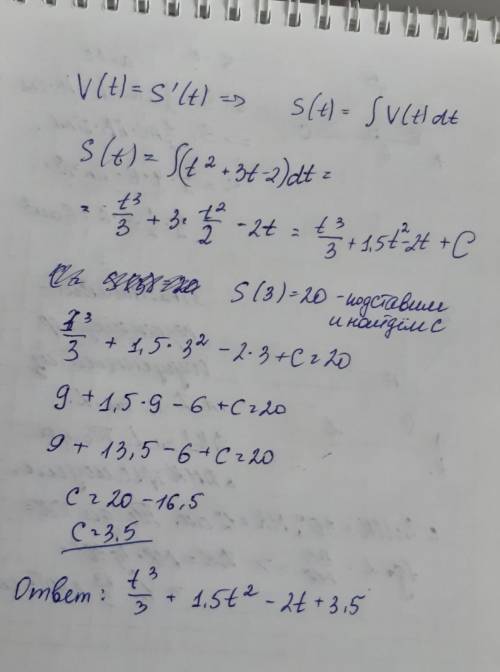 V(t) = S'(t) => S(t) = ∫V(t)dt
S(t) = ∫(t² + 3t - 2)dt =
= t³/3 + 3· t²/2 - 2t = t³/3 + 1,5t² - 2t + C
S(3) = 20 - подставим
и найдём С
3³/3 + 1,5·3² - 2·3 + C = 20
9 + 1,5·9 - 6 + C = 20
9 + 13,5 - 6 + C = 20
C = 20 - 16,5
C = 3,5
Ответ: t³/3 + 1,5t² - 2t + 3,5